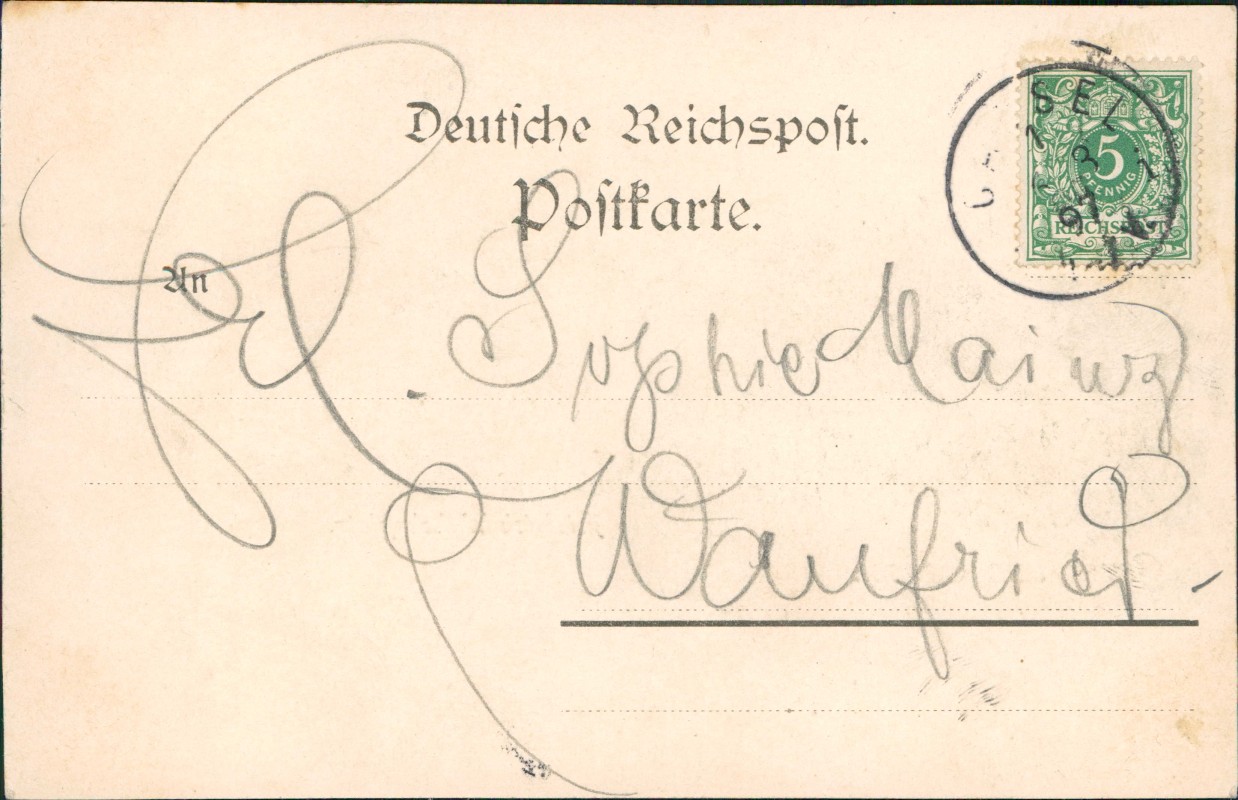 Deutsche Reichspost.
Postkarte.
5
PFENNIG
REICHSPOST
97
An
Frl. Sophie Mainz
Wanfried.